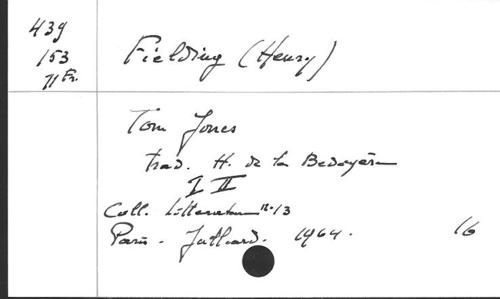 439
153
71 Fr.
Fielding (Henry)
Tom Jones
trad. H. de la Bedoyère
I II
Coll. Litterature n. 13
Paris - Julliard. 1964.
16